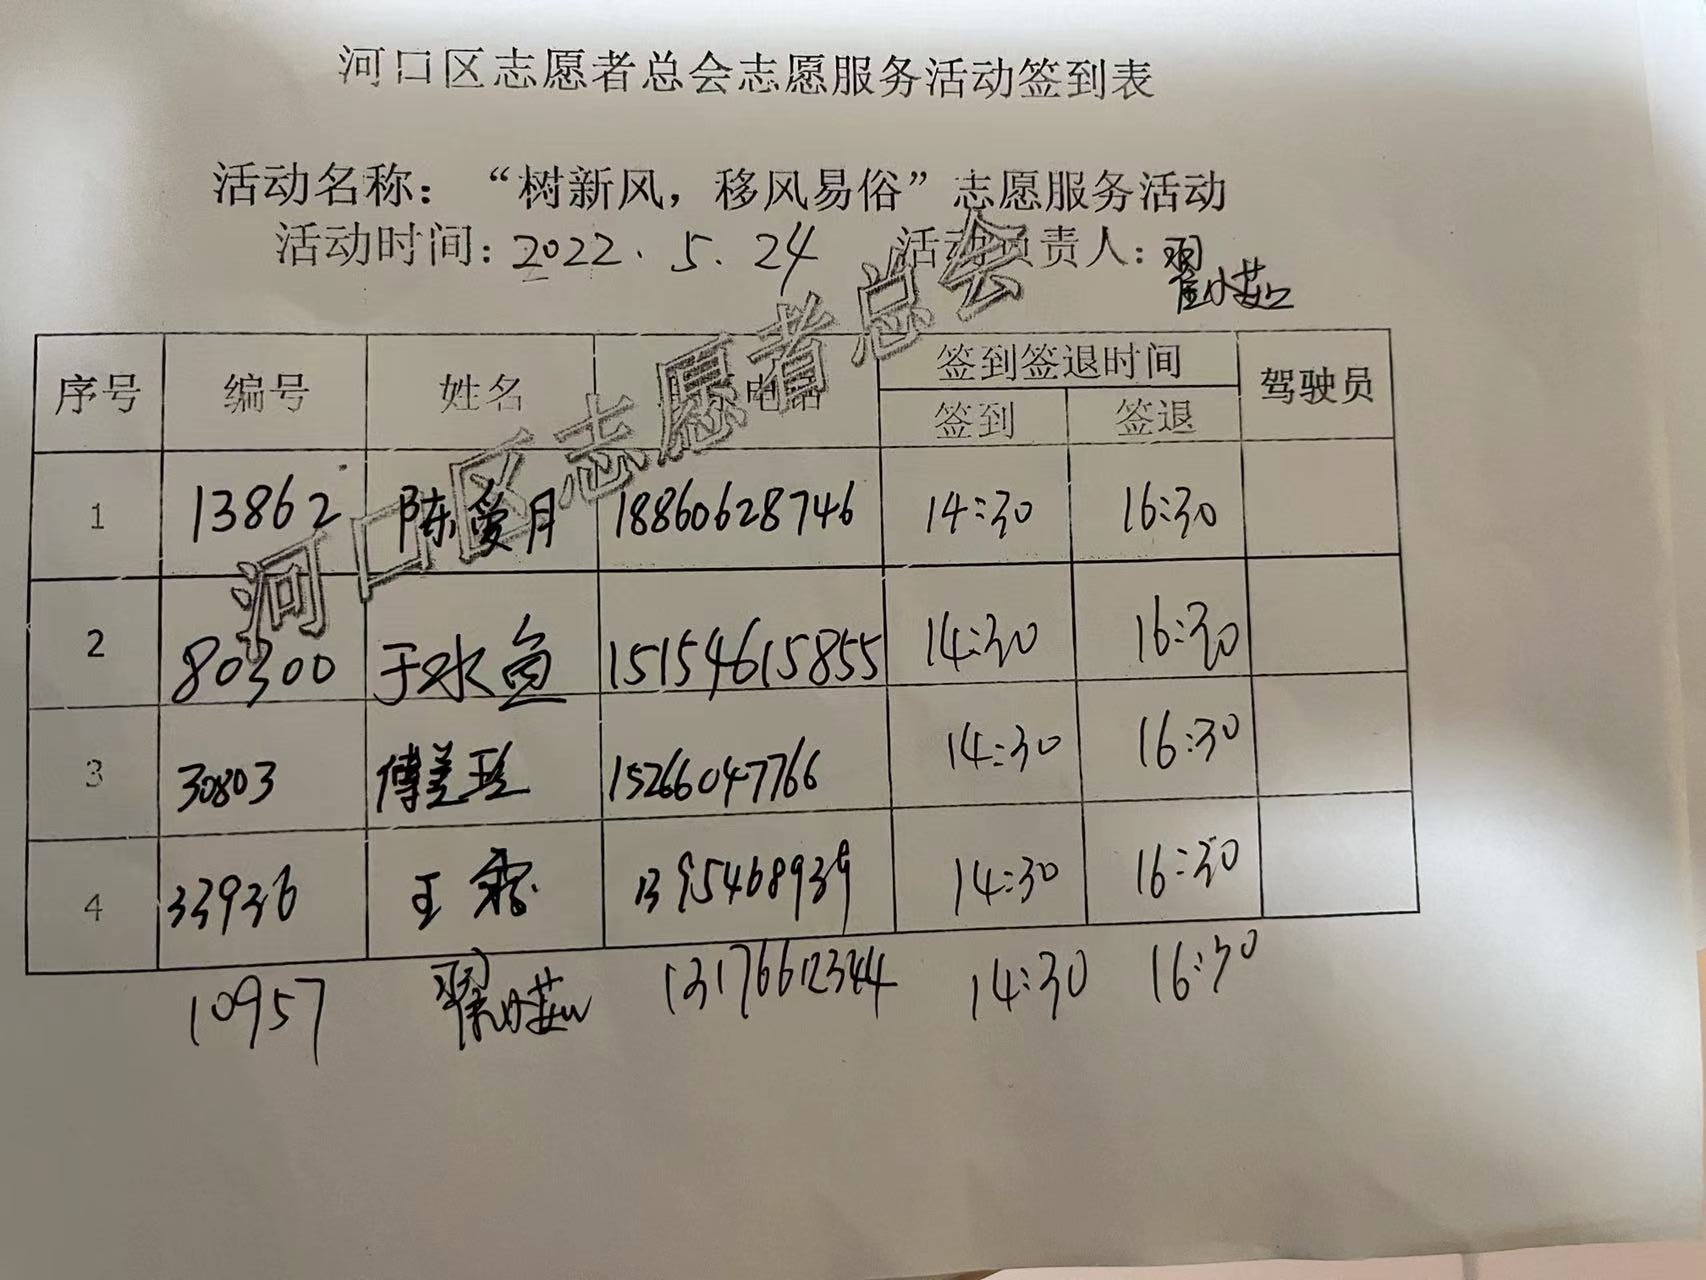 河口区志愿者总会志愿服务活动签到表
活动名称：“树新风，移风易俗”志愿服务活动
活动时间：2022.5.24 活动负责人：翟小茹
序号 编号 姓名 电话 签到签退时间 驾驶员
签到 签退
1 13862 陈爱月 18860628746 14:30 16:30
2 80300 于水鱼 15154615855 14:30 16:30
3 30803 傅美珍 15266047766 14:30 16:30
4 33936 王霞 1395468939 14:30 16:30
10957 翟小茹 13176612344 14:30 16:30
河口区志愿者总会